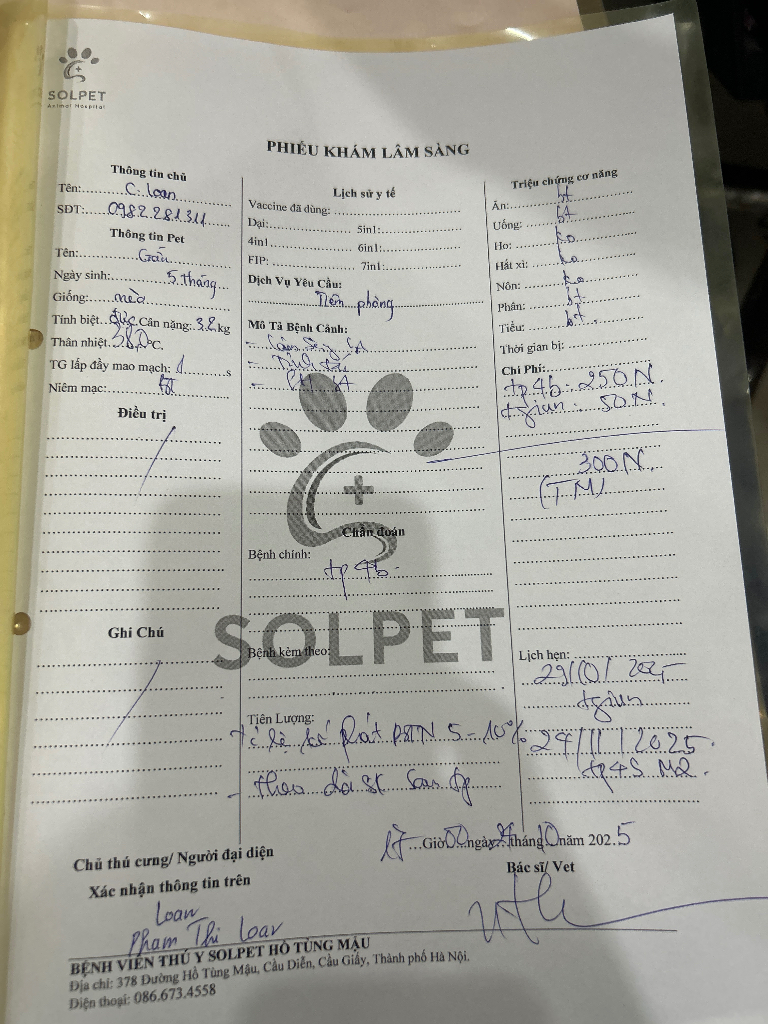 SOLPET
Animal Hospital
PHIẾU KHÁM LÂM SÀNG
Thông tin chủ
Tên: C. Loan
SĐT: 0982.281.311
Thông tin Pet
Tên: Gấu
Ngày sinh: 5 tháng
Giống: mèo
Tính biệt: đực Cân nặng: 3.2 kg
Thân nhiệt: 38,0 °C.
TG lấp đầy mao mạch: 1 s
Niêm mạc: bt
Điều trị
Ghi Chú
Lịch sử y tế
Vaccine đã dùng:
Dại: 5in1:
4in1 6in1:
FIP: 7in1:
Dịch Vụ Yêu Cầu:
Tiêm phòng
Mô Tả Bệnh Cảnh:
Chẩn đoán
Bệnh chính:
tp 4b
SOLPET
Bệnh kèm theo:
Tiên Lượng:
5 - 10%
- theo dõi sk sau
Triệu chứng cơ năng
Ăn: bt
Uống: bt
Ho: ko
Hắt xì: ko
Nôn: ko
Phân: bt
Tiểu: bt
Thời gian bị:
Chi Phí:
tp 4b: 250N.
tgiun: 50N.
300N.
(TM)
Lịch hẹn:
29/10/2025
tgiun
27/11/2025.
M2.
17 Giờ 00 ngày tháng 10 năm 2025
Chủ thú cưng/ Người đại diện
Xác nhận thông tin trên
Bác sĩ/ Vet
Loan
Phạm Thị Loan
BỆNH VIỆN THÚ Y SOLPET HỒ TÙNG MẬU
Địa chỉ: 378 Đường Hồ Tùng Mậu, Cầu Diễn, Cầu Giấy, Thành phố Hà Nội.
Điện thoại: 086.673.4558